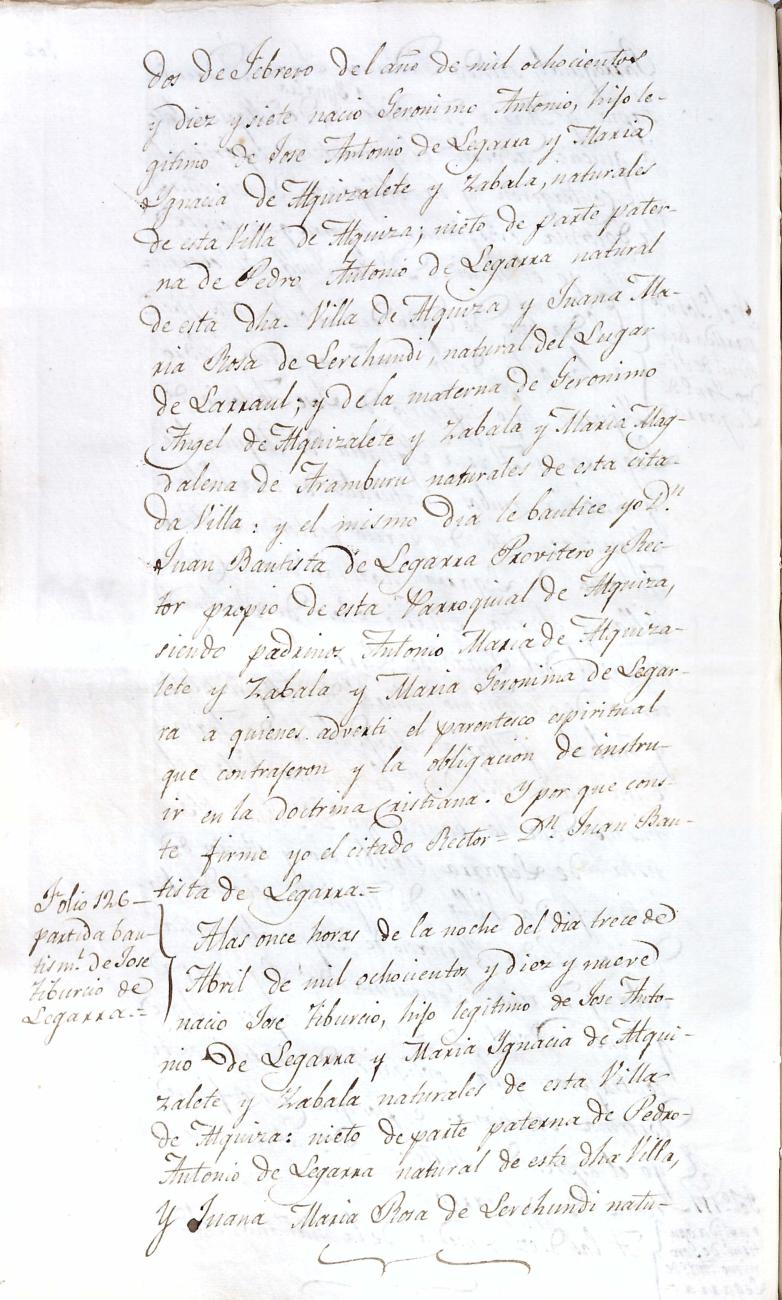 dos de Febrero del año de mil ochocientos
y diez y siete nacio Geronimo Antonio, hijo le-
gitimo de Jose Antonio de Legarra y Maria
Ygnacia de Alquizalete y Zabala, naturales
de esta Villa de Alquiza; nieto de parte pater-
na de Pedro Antonio de Legarra natural
de esta dha. Villa de Alquiza y Juana Ma-
ria Rosa de Lerchundi, natural del Lugar
de Larraul; y de la materna de Geronimo
Angel de Alquizalete y Zabala y Maria Mag-
dalena de Aramburu naturales de esta cita-
da Villa: y el mismo dia le bautice yo Dn.
Juan Bautista de Legarra Prvitero y Rec-
tor propio de esta Parroquial de Alquiza,
siendo padrinos Antonio Maria de Alquiza-
lete y Zabala y Maria Geronima de Legar-
ra á quienes adverti el parentesco espiritual
que contrageron y la obligacion de instru-
ir en la doctrina Cristiana. Y por que cons-
te firme yo el citado Rector= Dn. Juan Bau-
tista de Legarra.=
Folio 126-
partida bau-
tism.l de Jose
Tiburcio de
Legarra.=
A las once horas de la noche del dia trece de
Abril de mil ochocientos y diez y nueve
nacio Jose Tiburcio, hijo legitimo de Jose Anto-
nio de Legarra y Maria Ygnacia de Alqui-
zalete y Zabala naturales de esta Villa
de Alquiza: nieto de parte paterna de Pedro
Antonio de Legarra natural de esta dha Villa,
y Juana Maria Rosa de Lerchundi natu-